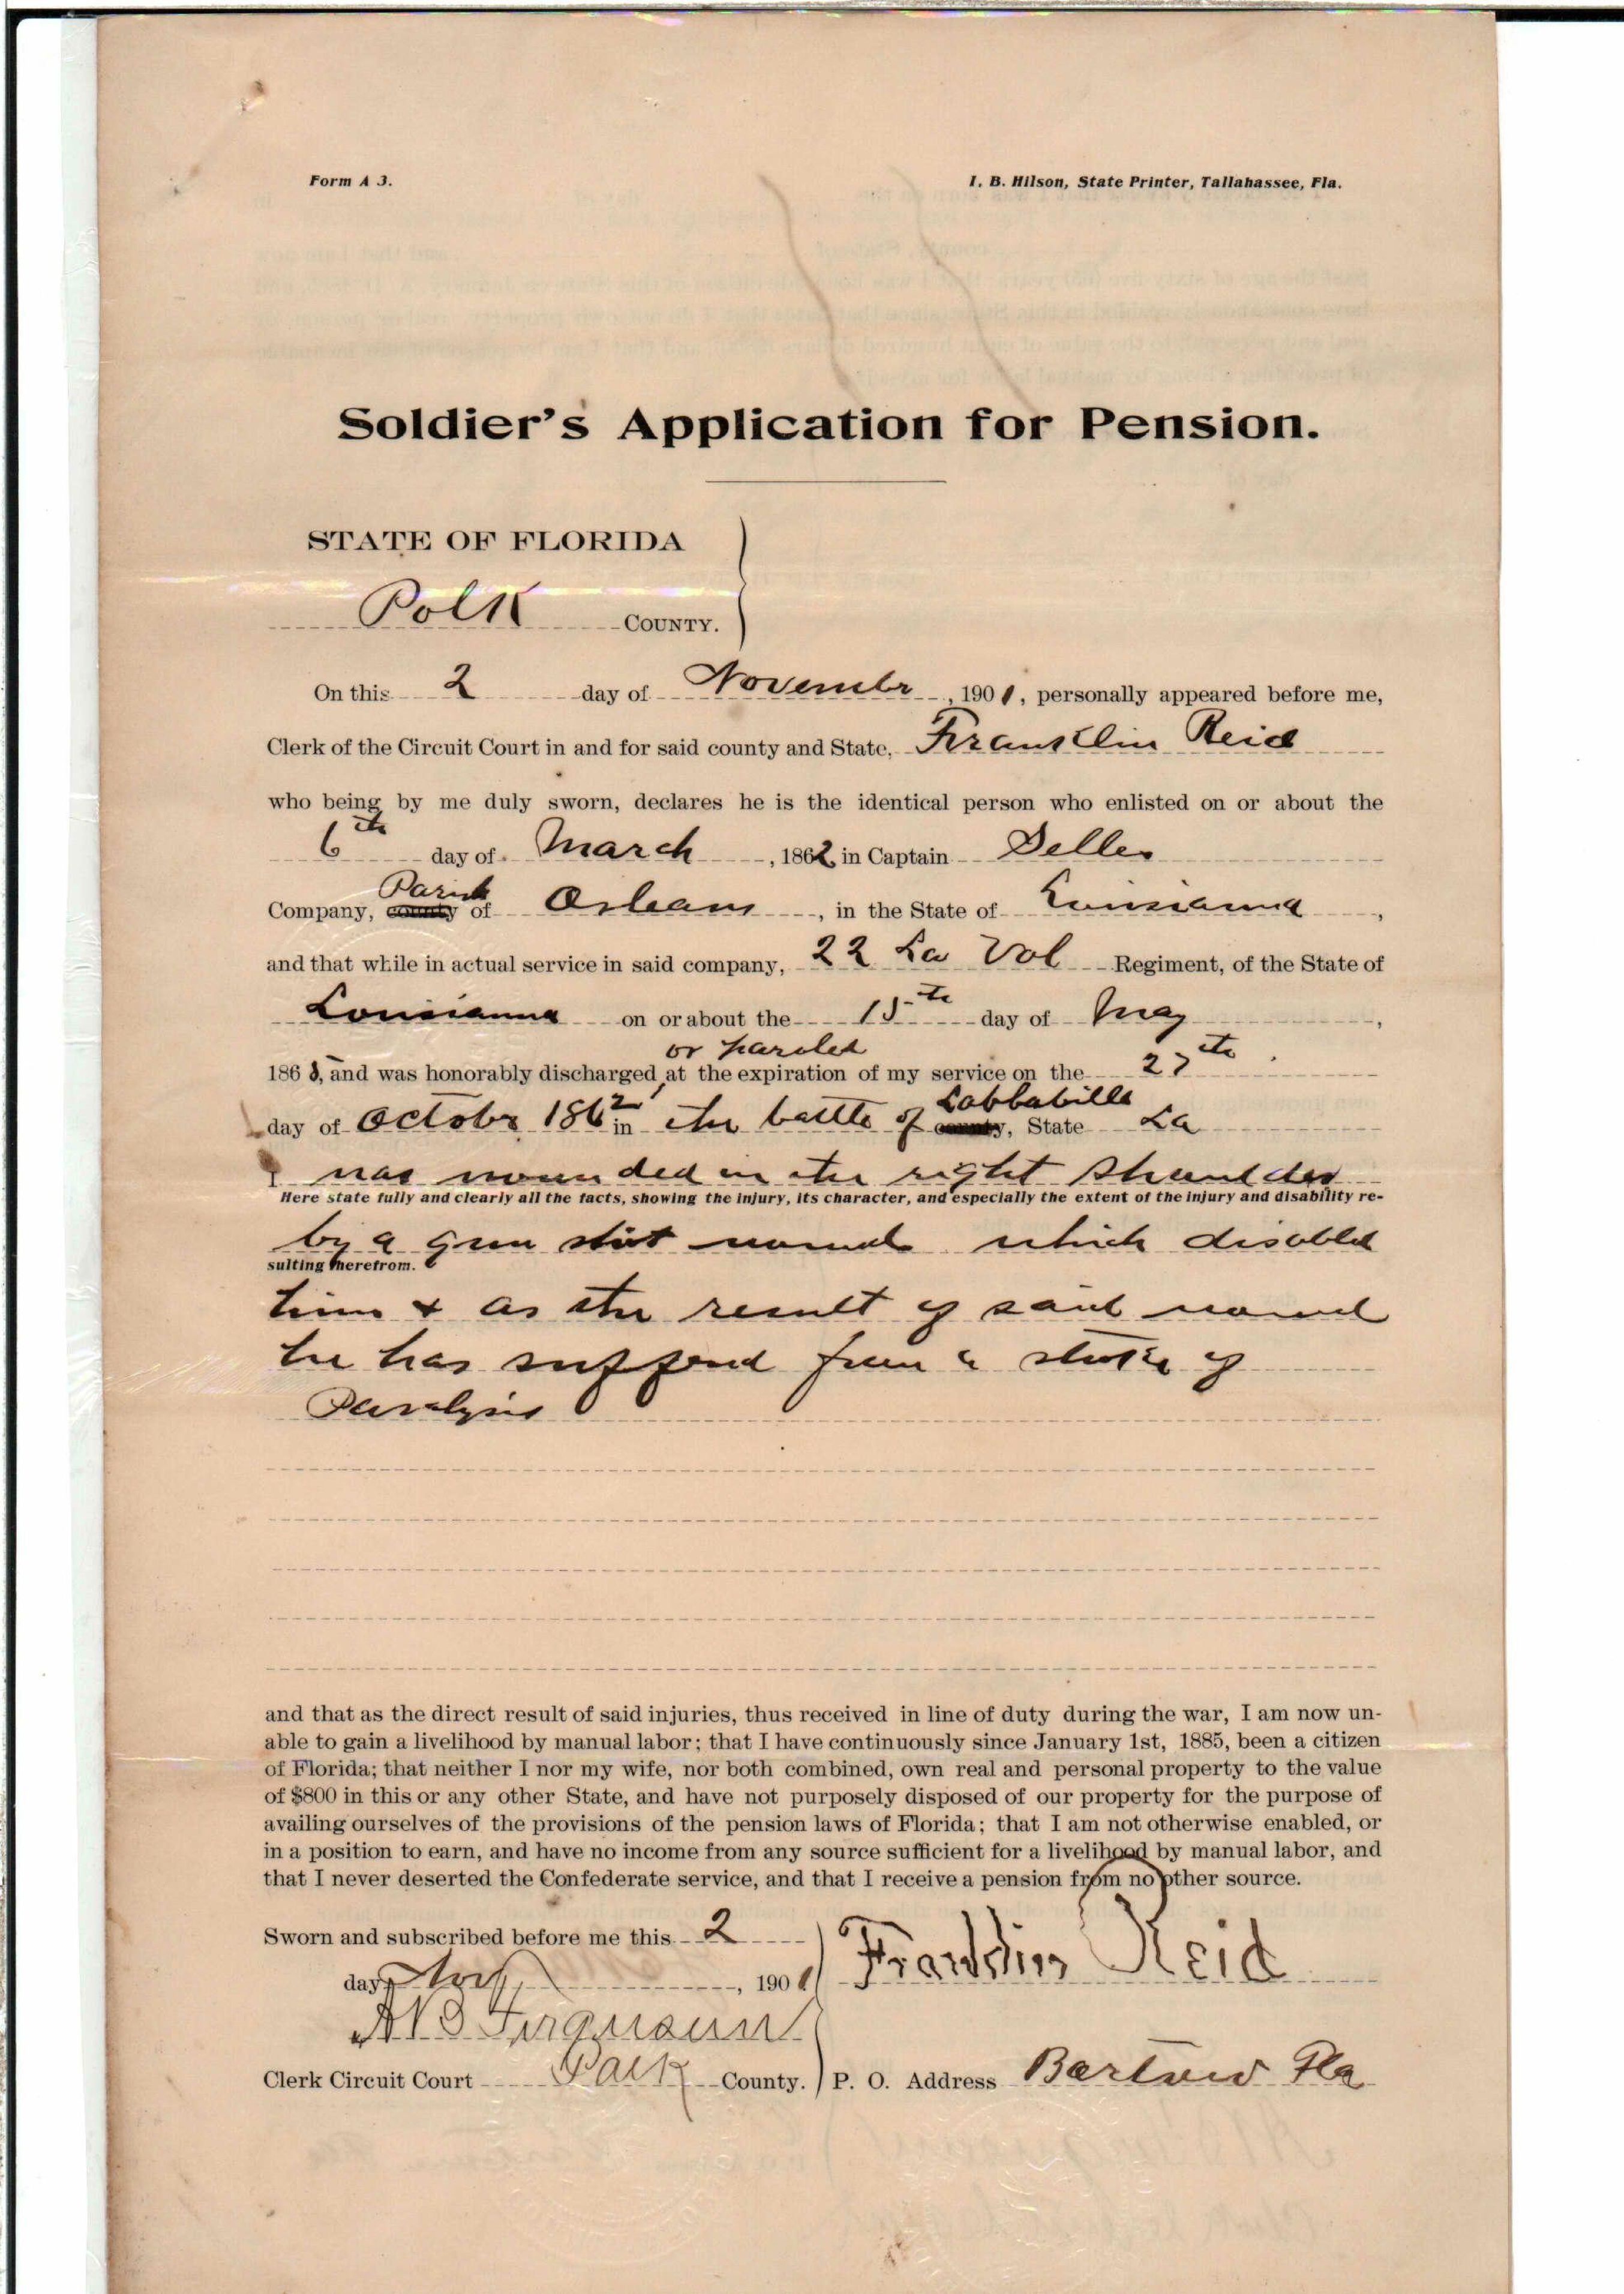 Form A 3.
I. B. Hilson, State Printer, Tallahassee, Fla.
Soldier's Application for Pension.
STATE OF FLORIDA
Polk COUNTY.
On this 2 day of Novembr, 1901, personally appeared before me,
Clerk of the Circuit Court in and for said county and State, Franklin Reid
who being by me duly sworn, declares he is the identical person who enlisted on or about the
6th day of March, 1862 in Captain
Parish
Company, county of Orleans, in the State of Louisianna,
and that while in actual service in said company, 22 La Vol Regiment, of the State of
Louisianna on or about the 15th day of May,
or paroled
1865, and was honorably discharged at the expiration of my service on the 27th
day of Octobr 1862 in the battle of county, State La
I was wounded in the right shoulder
Here state fully and clearly all the facts, showing the injury, its character, and especially the extent of the injury and disability re-
by a gun shot wound which disabled
sulting therefrom.
him & as the result of said wound
he has sufferd from a stroke of
Paralysis
and that as the direct result of said injuries, thus received in line of duty during the war, I am now un-
able to gain a livelihood by manual labor; that I have continuously since January 1st, 1885, been a citizen
of Florida; that neither I nor my wife, nor both combined, own real and personal property to the value
of $800 in this or any other State, and have not purposely disposed of our property for the purpose of
availing ourselves of the provisions of the pension laws of Florida; that I am not otherwise enabled, or
in a position to earn, and have no income from any source sufficient for a livelihood by manual labor, and
that I never deserted the Confederate service, and that I receive a pension from no other source.
Sworn and subscribed before me this 2
day Nov, 1901
Franklin Reid
Clerk Circuit Court Polk County.
P. O. Address Bartow Fla